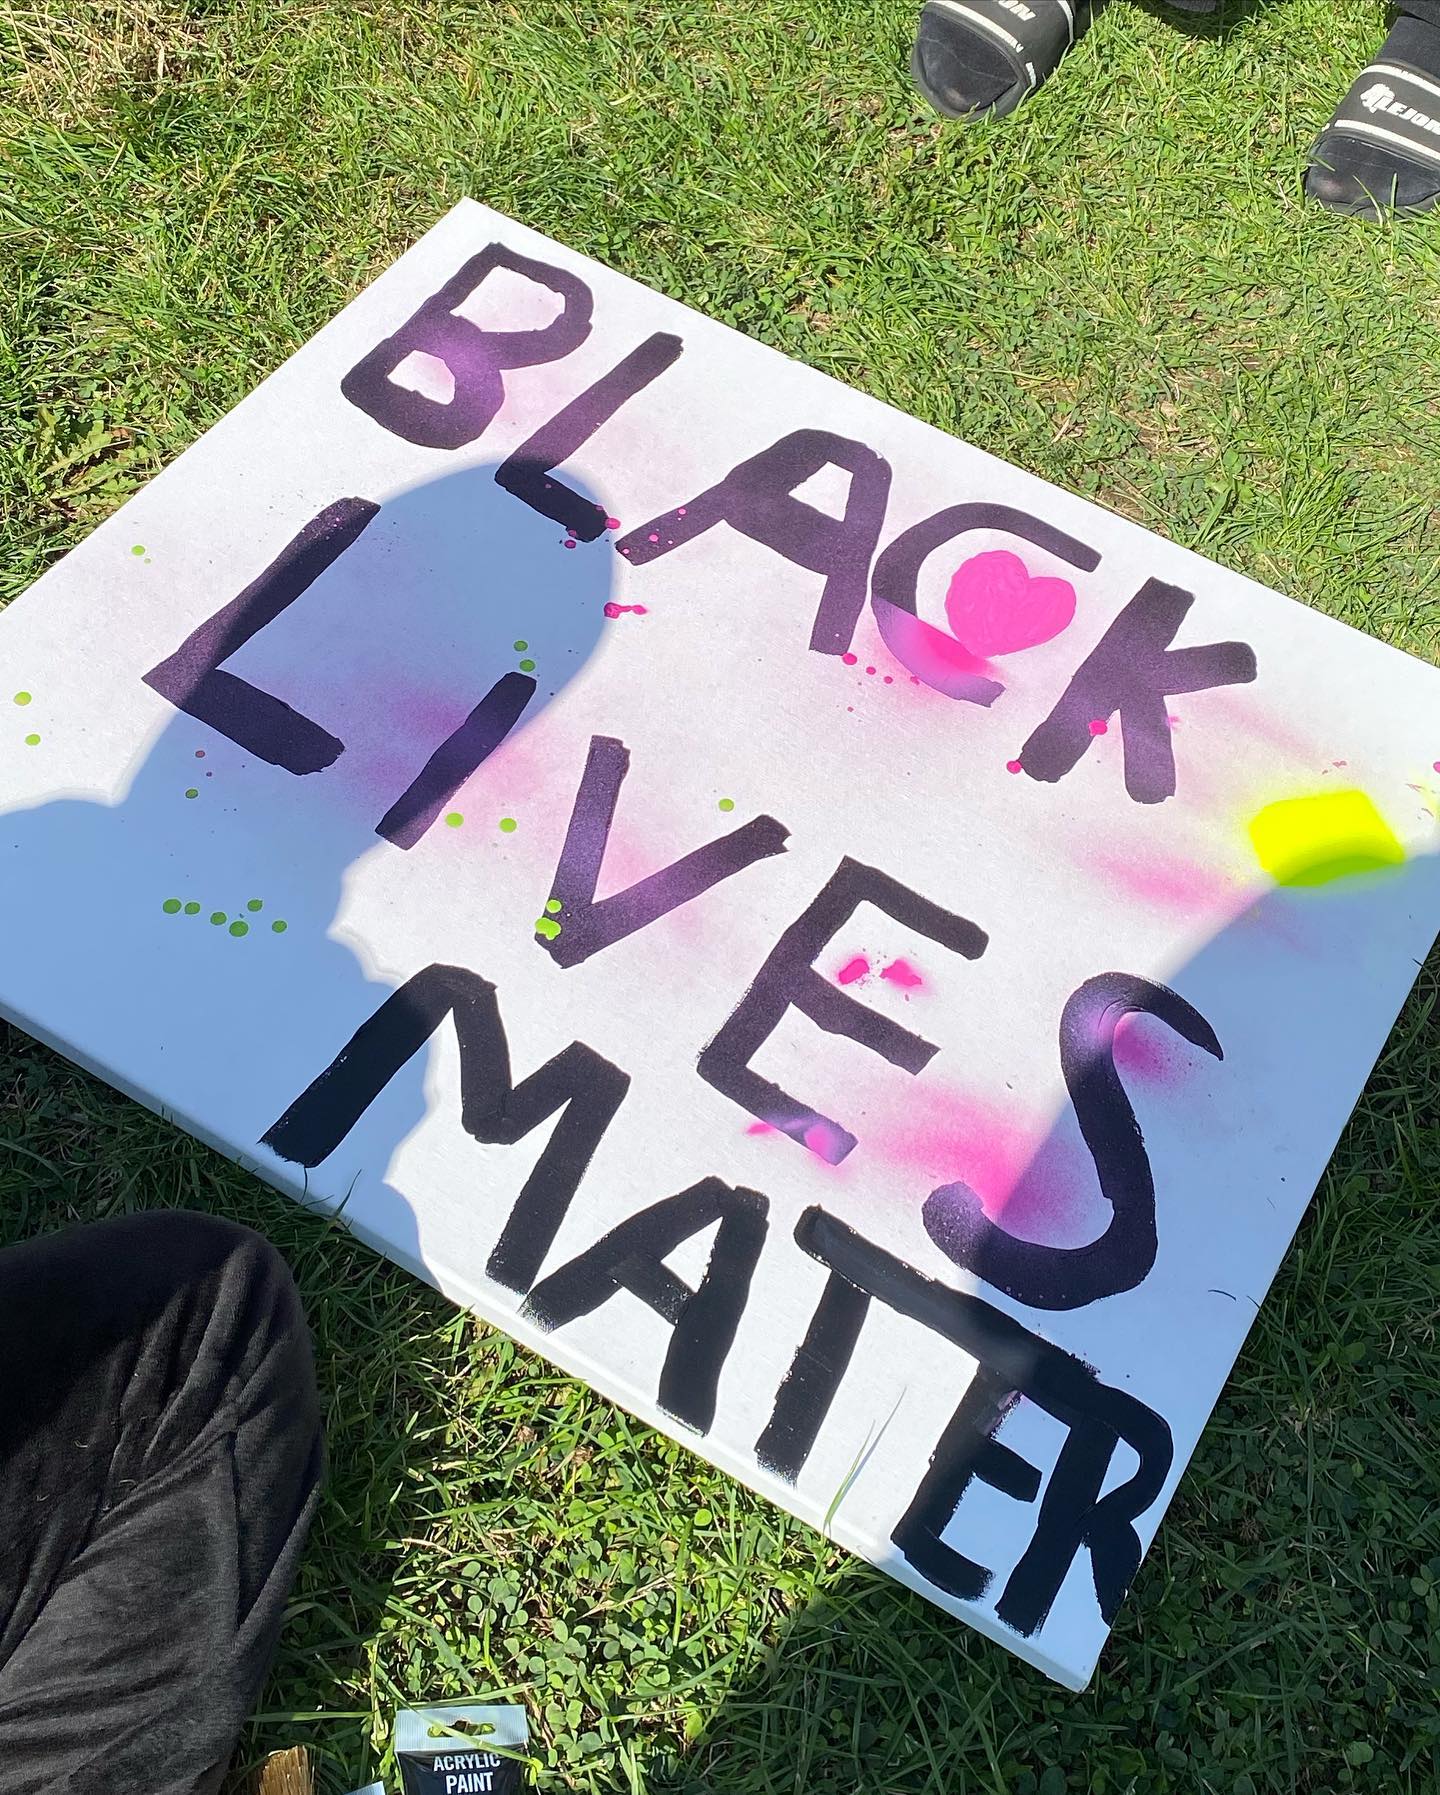 BLACK
LIVES
MATTER
ACRYLIC
PAINT